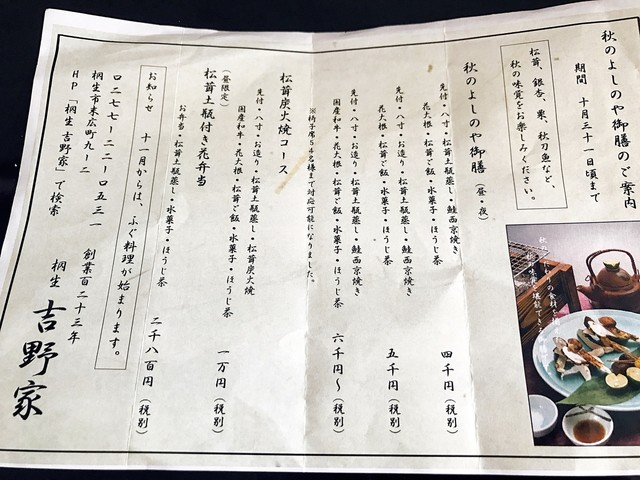 秋のよしのや御膳のご案内
期間　十月三十一日頃まで
松茸、銀杏、栗、秋刀魚など、
秋の味覚をお楽しみください。
秋のよしのや御膳（昼・夜）
先付・八寸・お造り・松茸土瓶蒸し・鮭西京焼き
花大根・松茸ご飯・水菓子・ほうじ茶
四千円（税別）
先付・八寸・お造り・松茸土瓶蒸し・鮭西京焼き
花大根・松茸ご飯・水菓子・ほうじ茶
五千円（税別）
先付・八寸・お造り・松茸土瓶蒸し・鮭西京焼き
国産和牛・花大根・松茸ご飯・水菓子・ほうじ茶
六千円〜（税別）
※椅子席54名様まで対応可能になりました。
松茸炭火焼コース
先付・八寸・お造り・松茸土瓶蒸し・松茸炭火焼
国産和牛・花大根・松茸ご飯・水菓子・ほうじ茶
一万円（税別）
松茸土瓶付き花弁当
（昼限定）
お弁当・松茸土瓶蒸し・水菓子・ほうじ茶
二千八百円（税別）
お知らせ　十一月からは、ふぐ料理が始まります。
〇二七七ー二二ー〇五三一　創業百二十三年
桐生市末広町九ー二
HP「桐生吉野家」で検索
桐生　吉野家